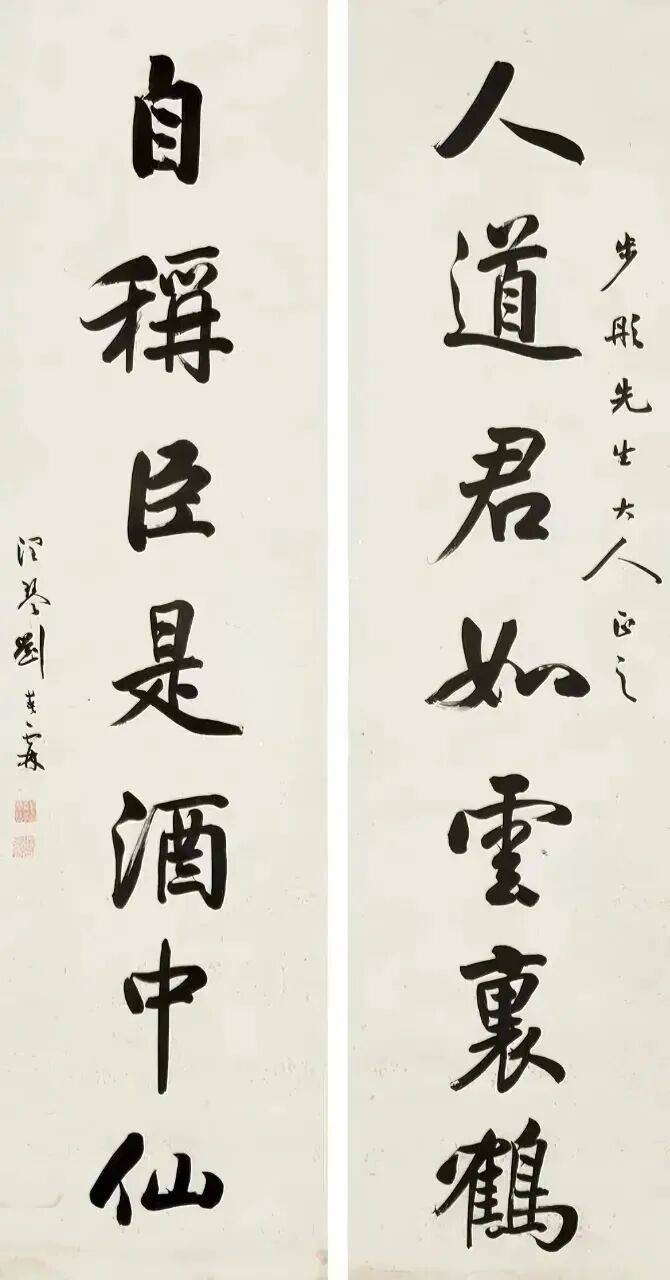 步彤先生大人正之
人道君如雲裏鶴
自稱臣是酒中仙
潤琴劉春霖